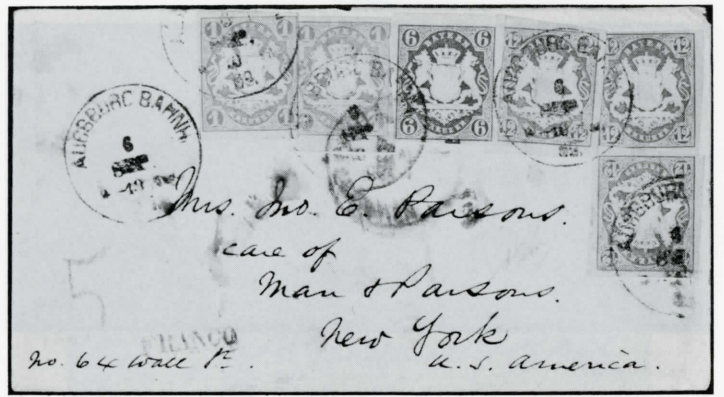 1 1 6 6 12 12
AUGSBURG BAHNH.
6
SEP
Mrs. Jno. E. Parsons.
care of
Man & Parsons.
New York
FRANCO
No. 64 Wall St.
U.S. America.
5